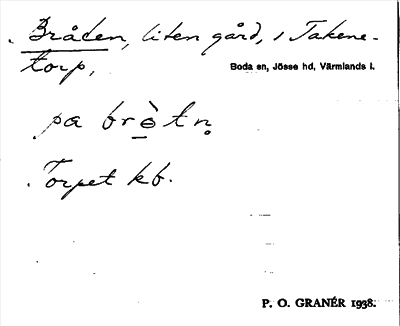 Bråten, liten gård, i Takene-
torp,
Boda sn, Jösse hd, Värmlands l.
pa brə̀tn̥
Torpet kb.
P. O. GRANÉR 1938.